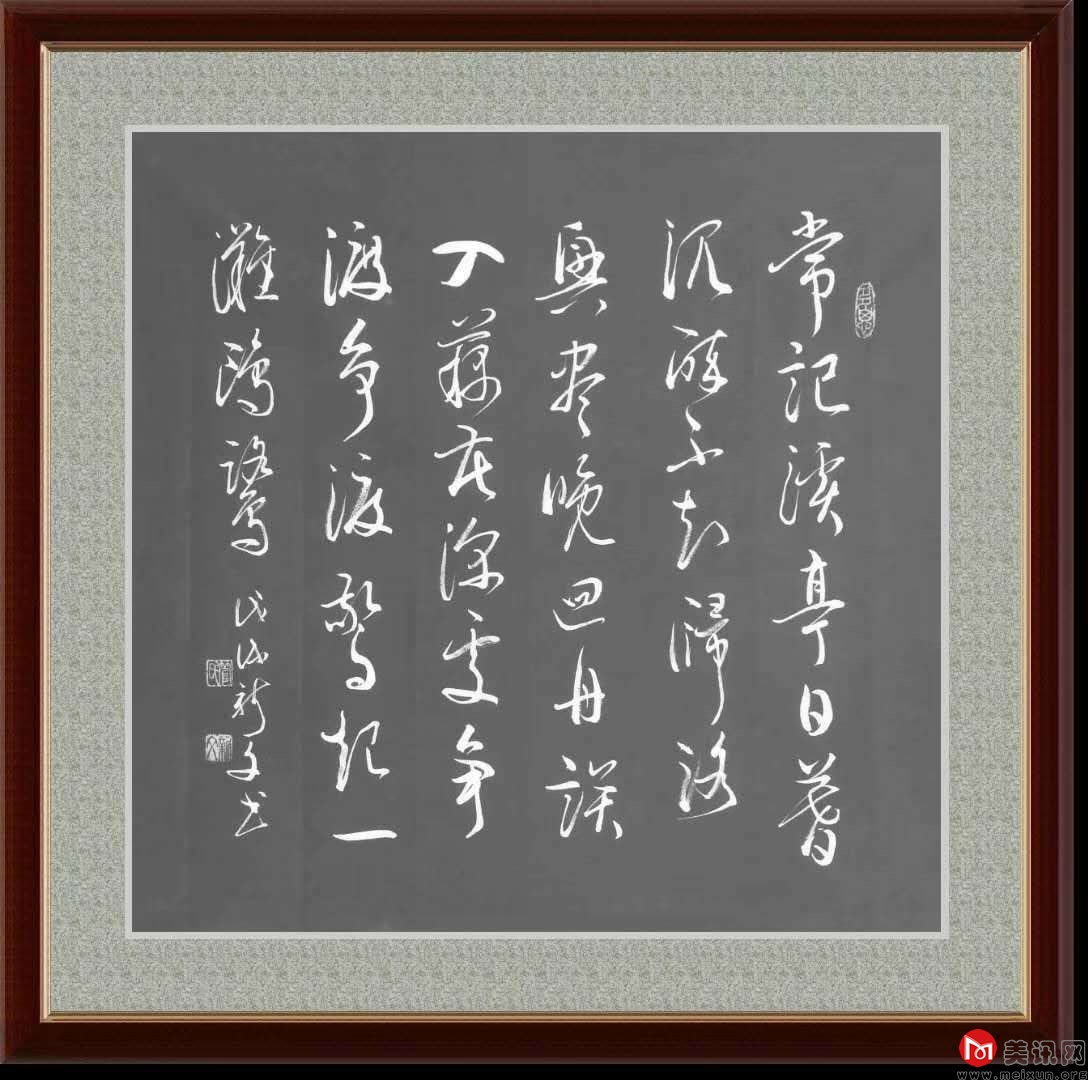 常記溪亭日暮
沉醉不知歸路
興盡晚回舟誤
入藕花深處爭
渡爭渡驚起一
灘鷗鷺 戊戌新文书
美讯网
www.meixun.org